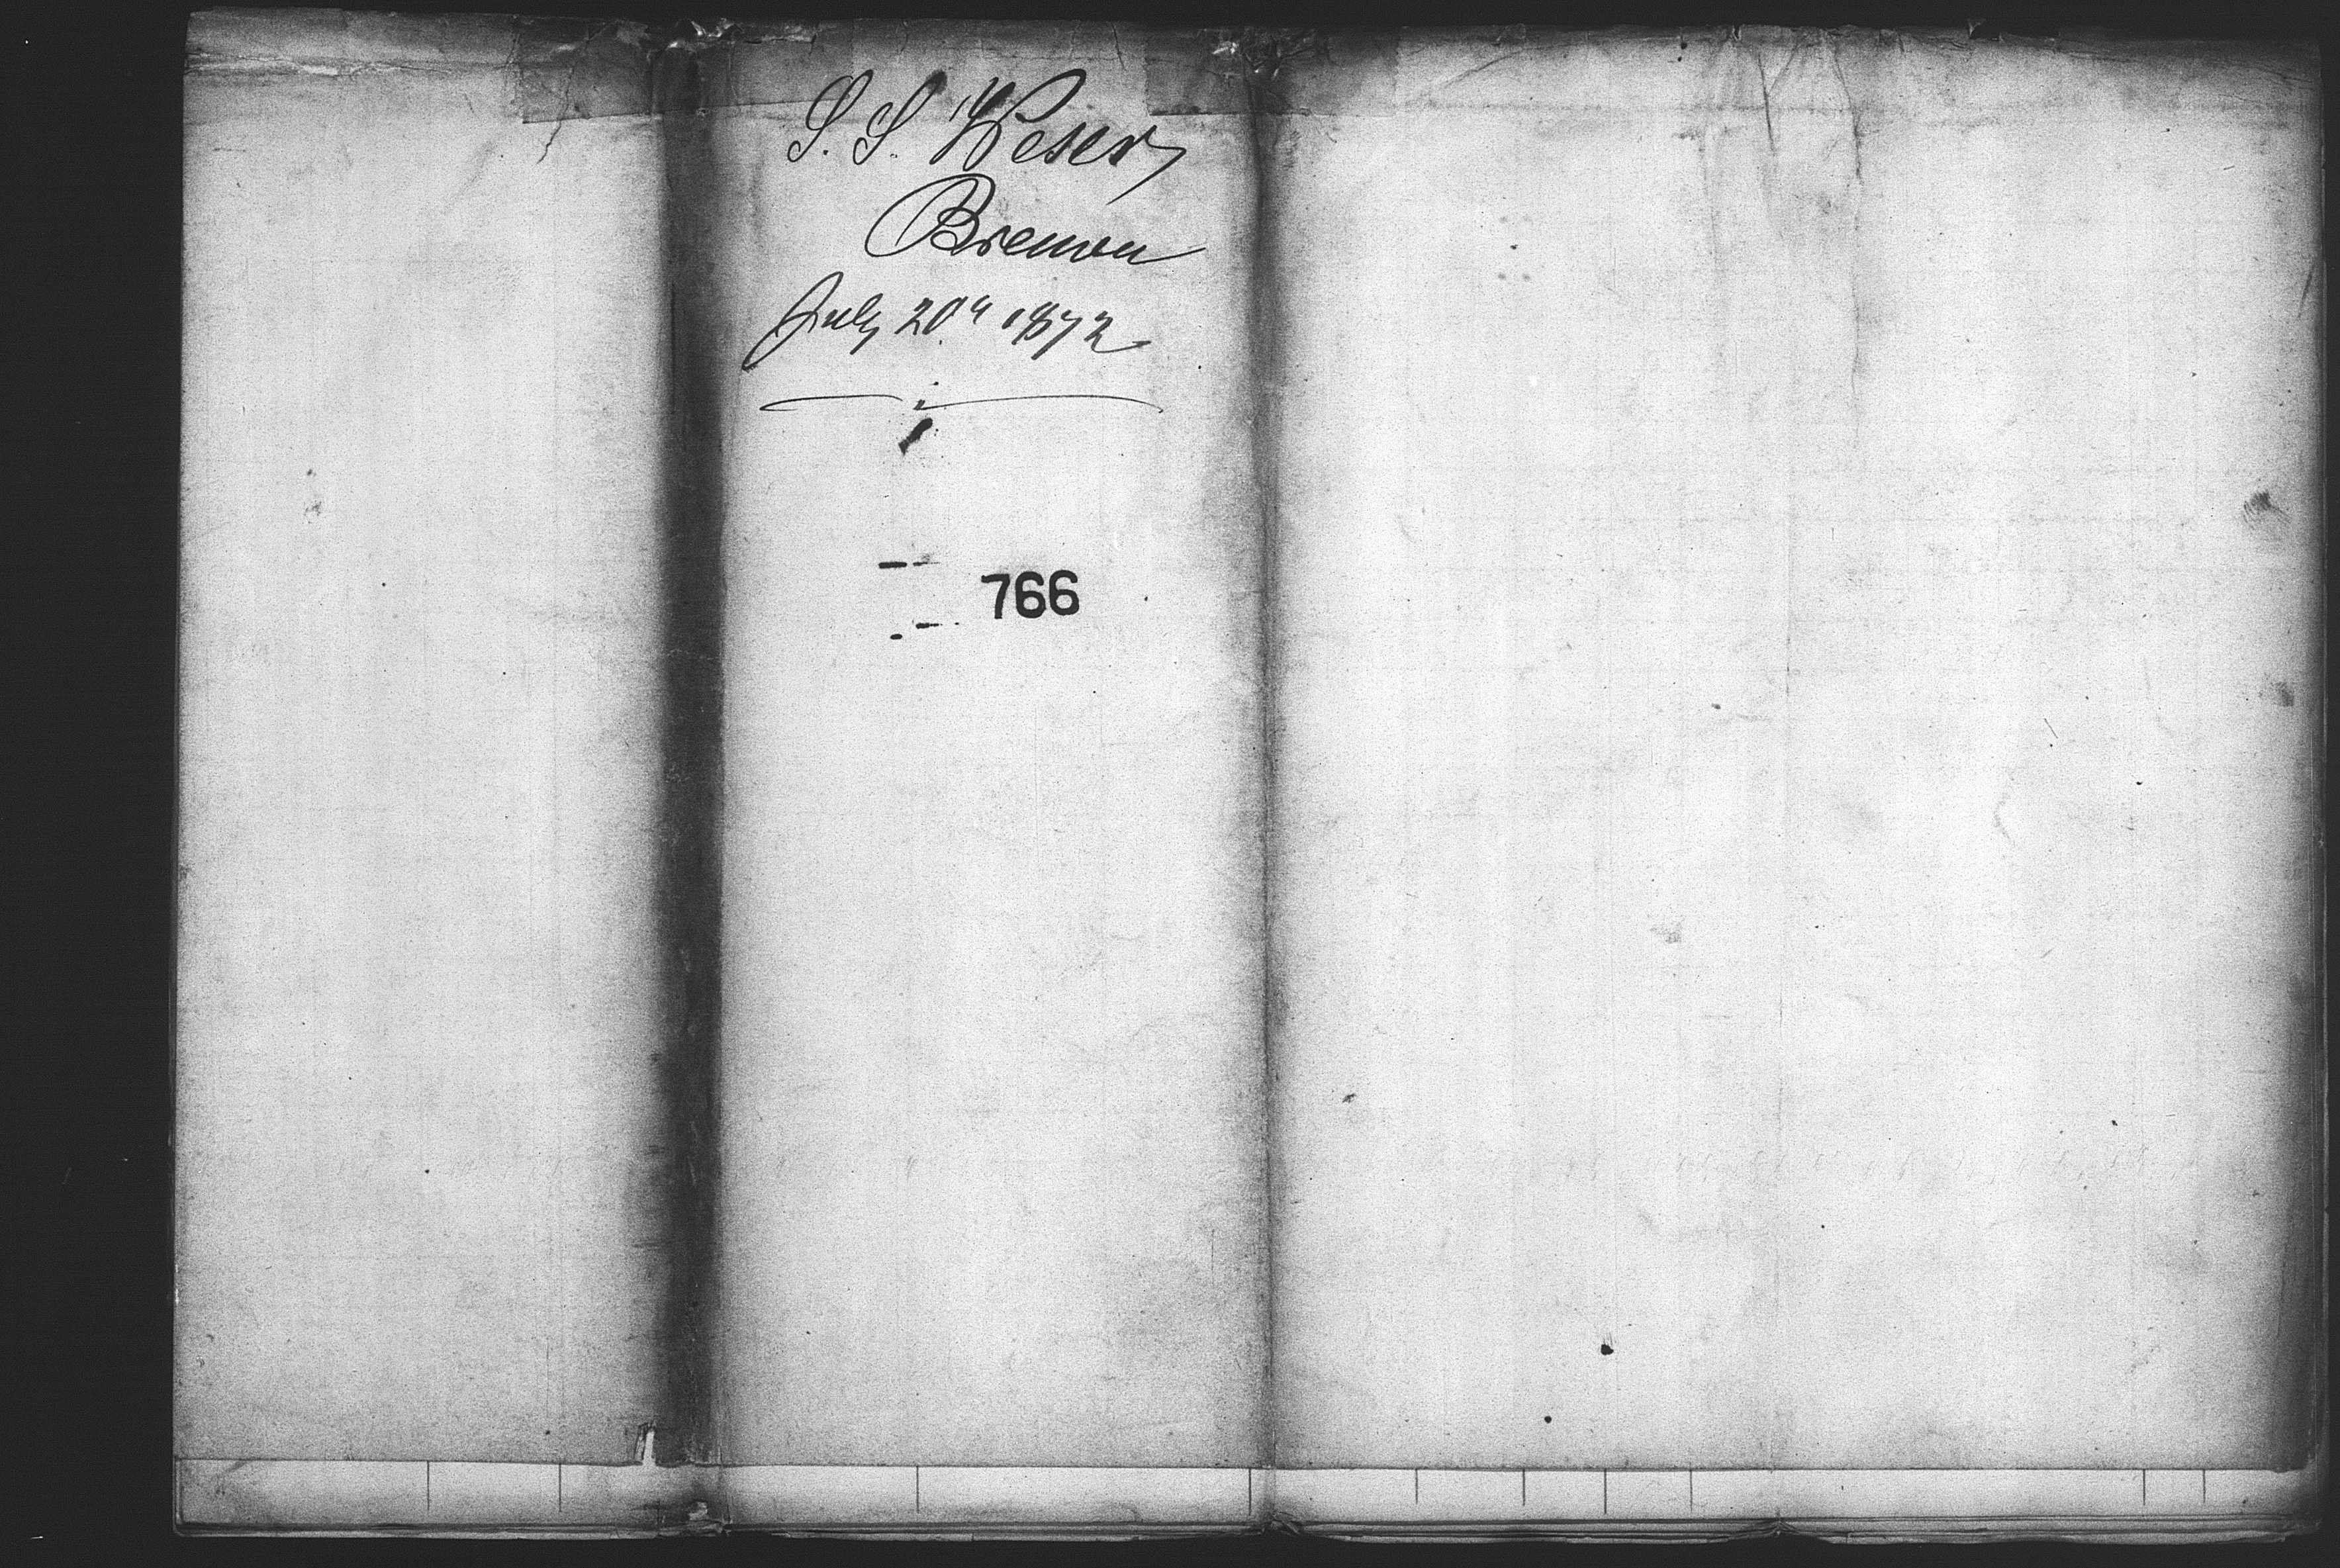 S. S. Weser,
Bremen
July 20" 1872
766